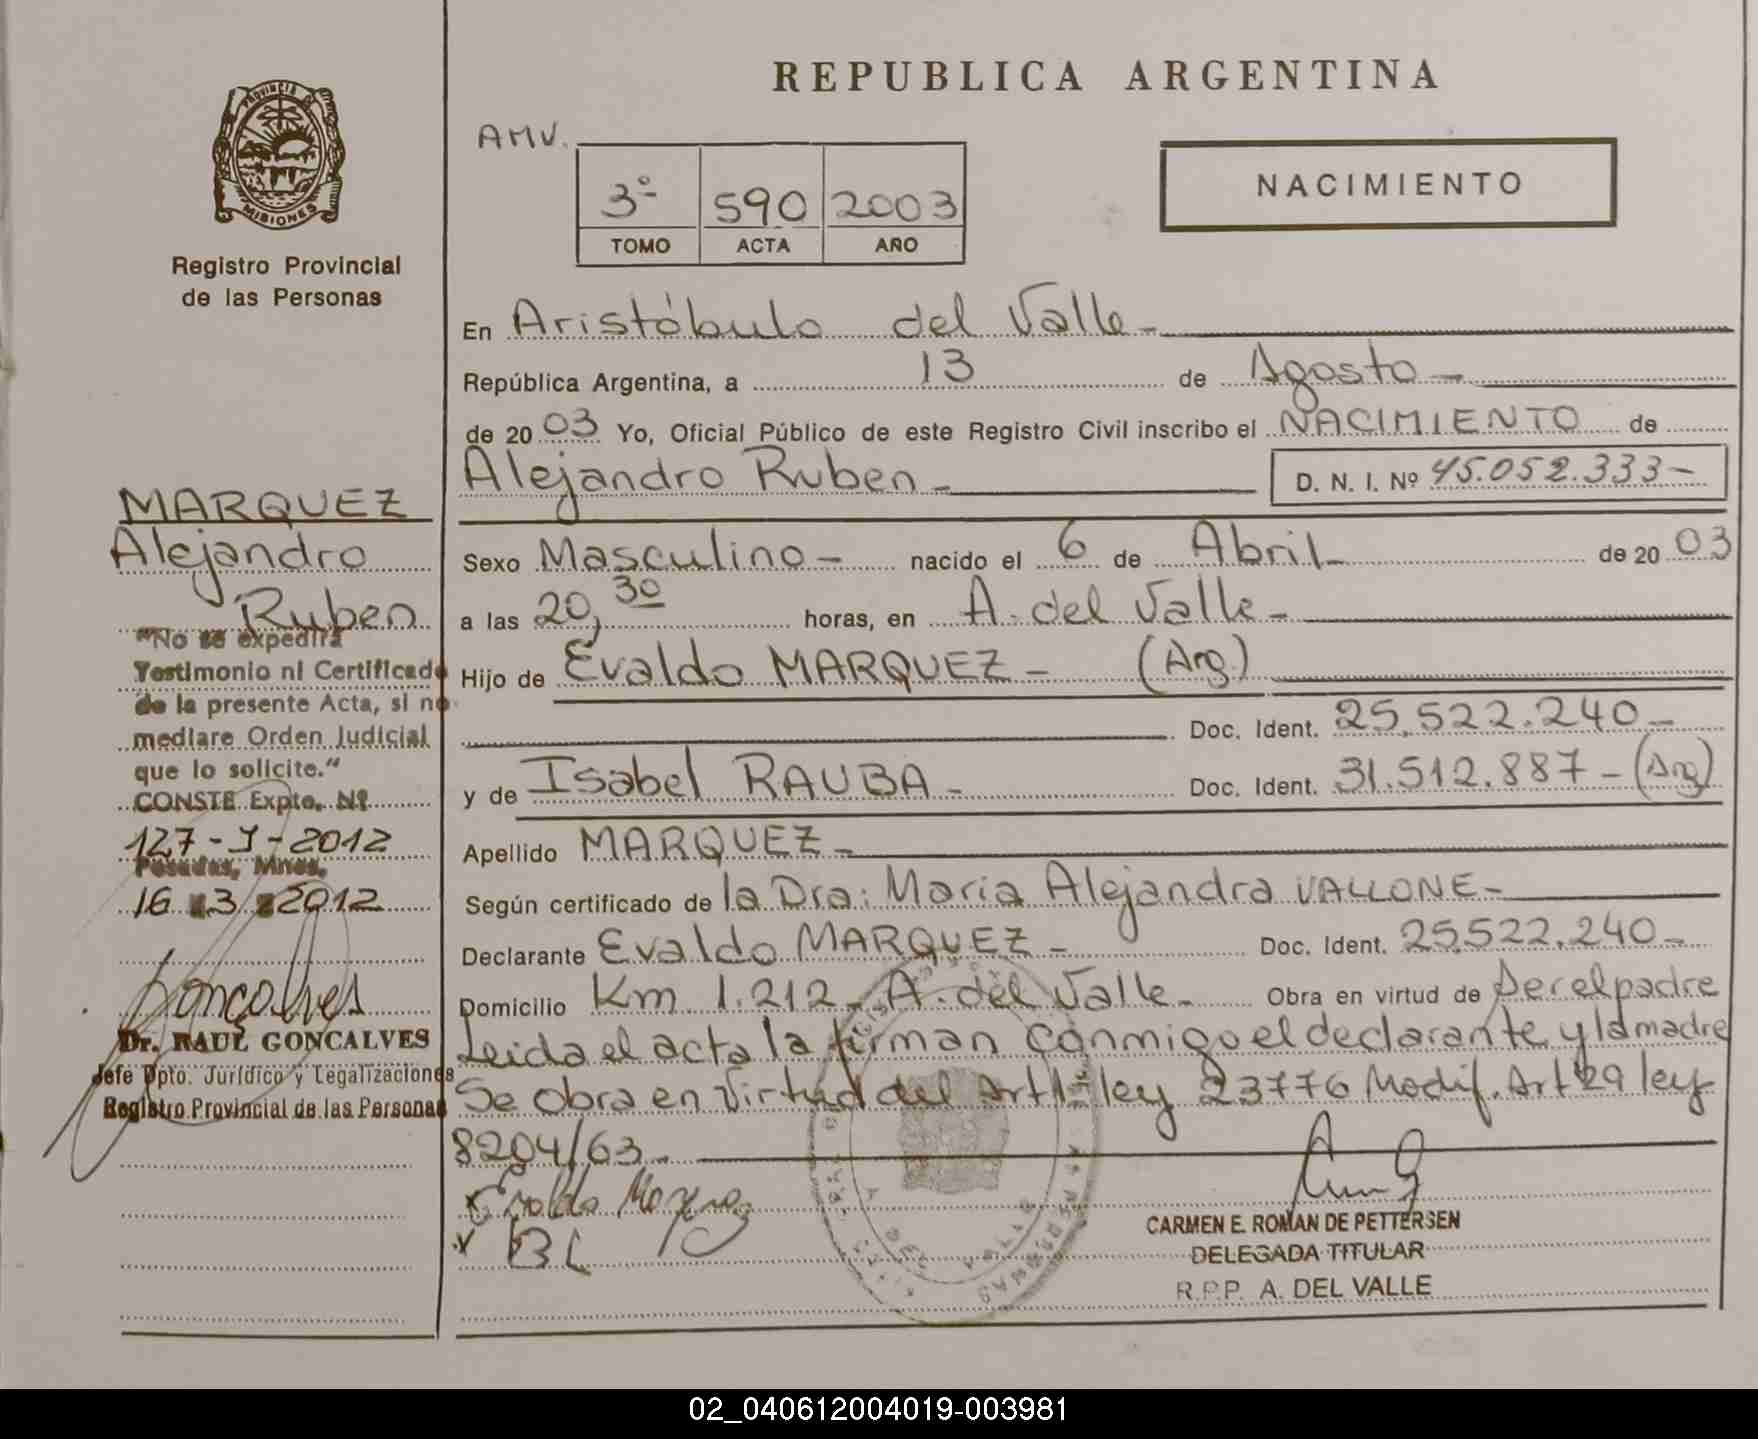 PROVINCIA DE
MISIONES
Registro Provincial
de las Personas
MARQUEZ
Alejandro
Ruben
"No se expedirá
Testimonio ni Certificado
de la presente Acta, si no
mediare Orden Judicial
que lo solicite."
CONSTE Expte. Nº
127-J-2012
Posadas, Mnes,
16 3 2012
Dr. RAUL GONCALVES
Jefe Dpto. Jurídico y Legalizaciones
Registro Provincial de las Personas
REPUBLICA ARGENTINA
AMV.
3º 590 2003
TOMO ACTA AÑO
NACIMIENTO
En Aristóbulo del Valle -
República Argentina, a 13 de Agosto -
de 2003 Yo, Oficial Público de este Registro Civil inscribo el NACIMIENTO de
Alejandro Ruben - D. N. I. Nº 45.052.333-
Sexo Masculino - nacido el 6 de Abril - de 2003
a las 20,30 horas, en A. del Valle -
Hijo de Evaldo MARQUEZ - (Arg.)
Doc. Ident. 25.522.240 -
y de Isabel RAUBA - Doc. Ident. 31.512.887 - (Arg)
Apellido MARQUEZ -
Según certificado de la Dra: Maria Alejandra VALLONE -
Declarante Evaldo MARQUEZ - Doc. Ident. 25522.240 -
Domicilio Km 1.212 - A. del Valle - Obra en virtud de Ser el padre
Leida el acta la firman conmigo el declarante y la madre
Se obra en virtud del Art 1º ley 23776 Modif. Art 29 ley
8204/63 -
CARMEN E. ROMAN DE PETTERSEN
DELEGADA TITULAR
R.P.P. A. DEL VALLE
02_040612004019-003981